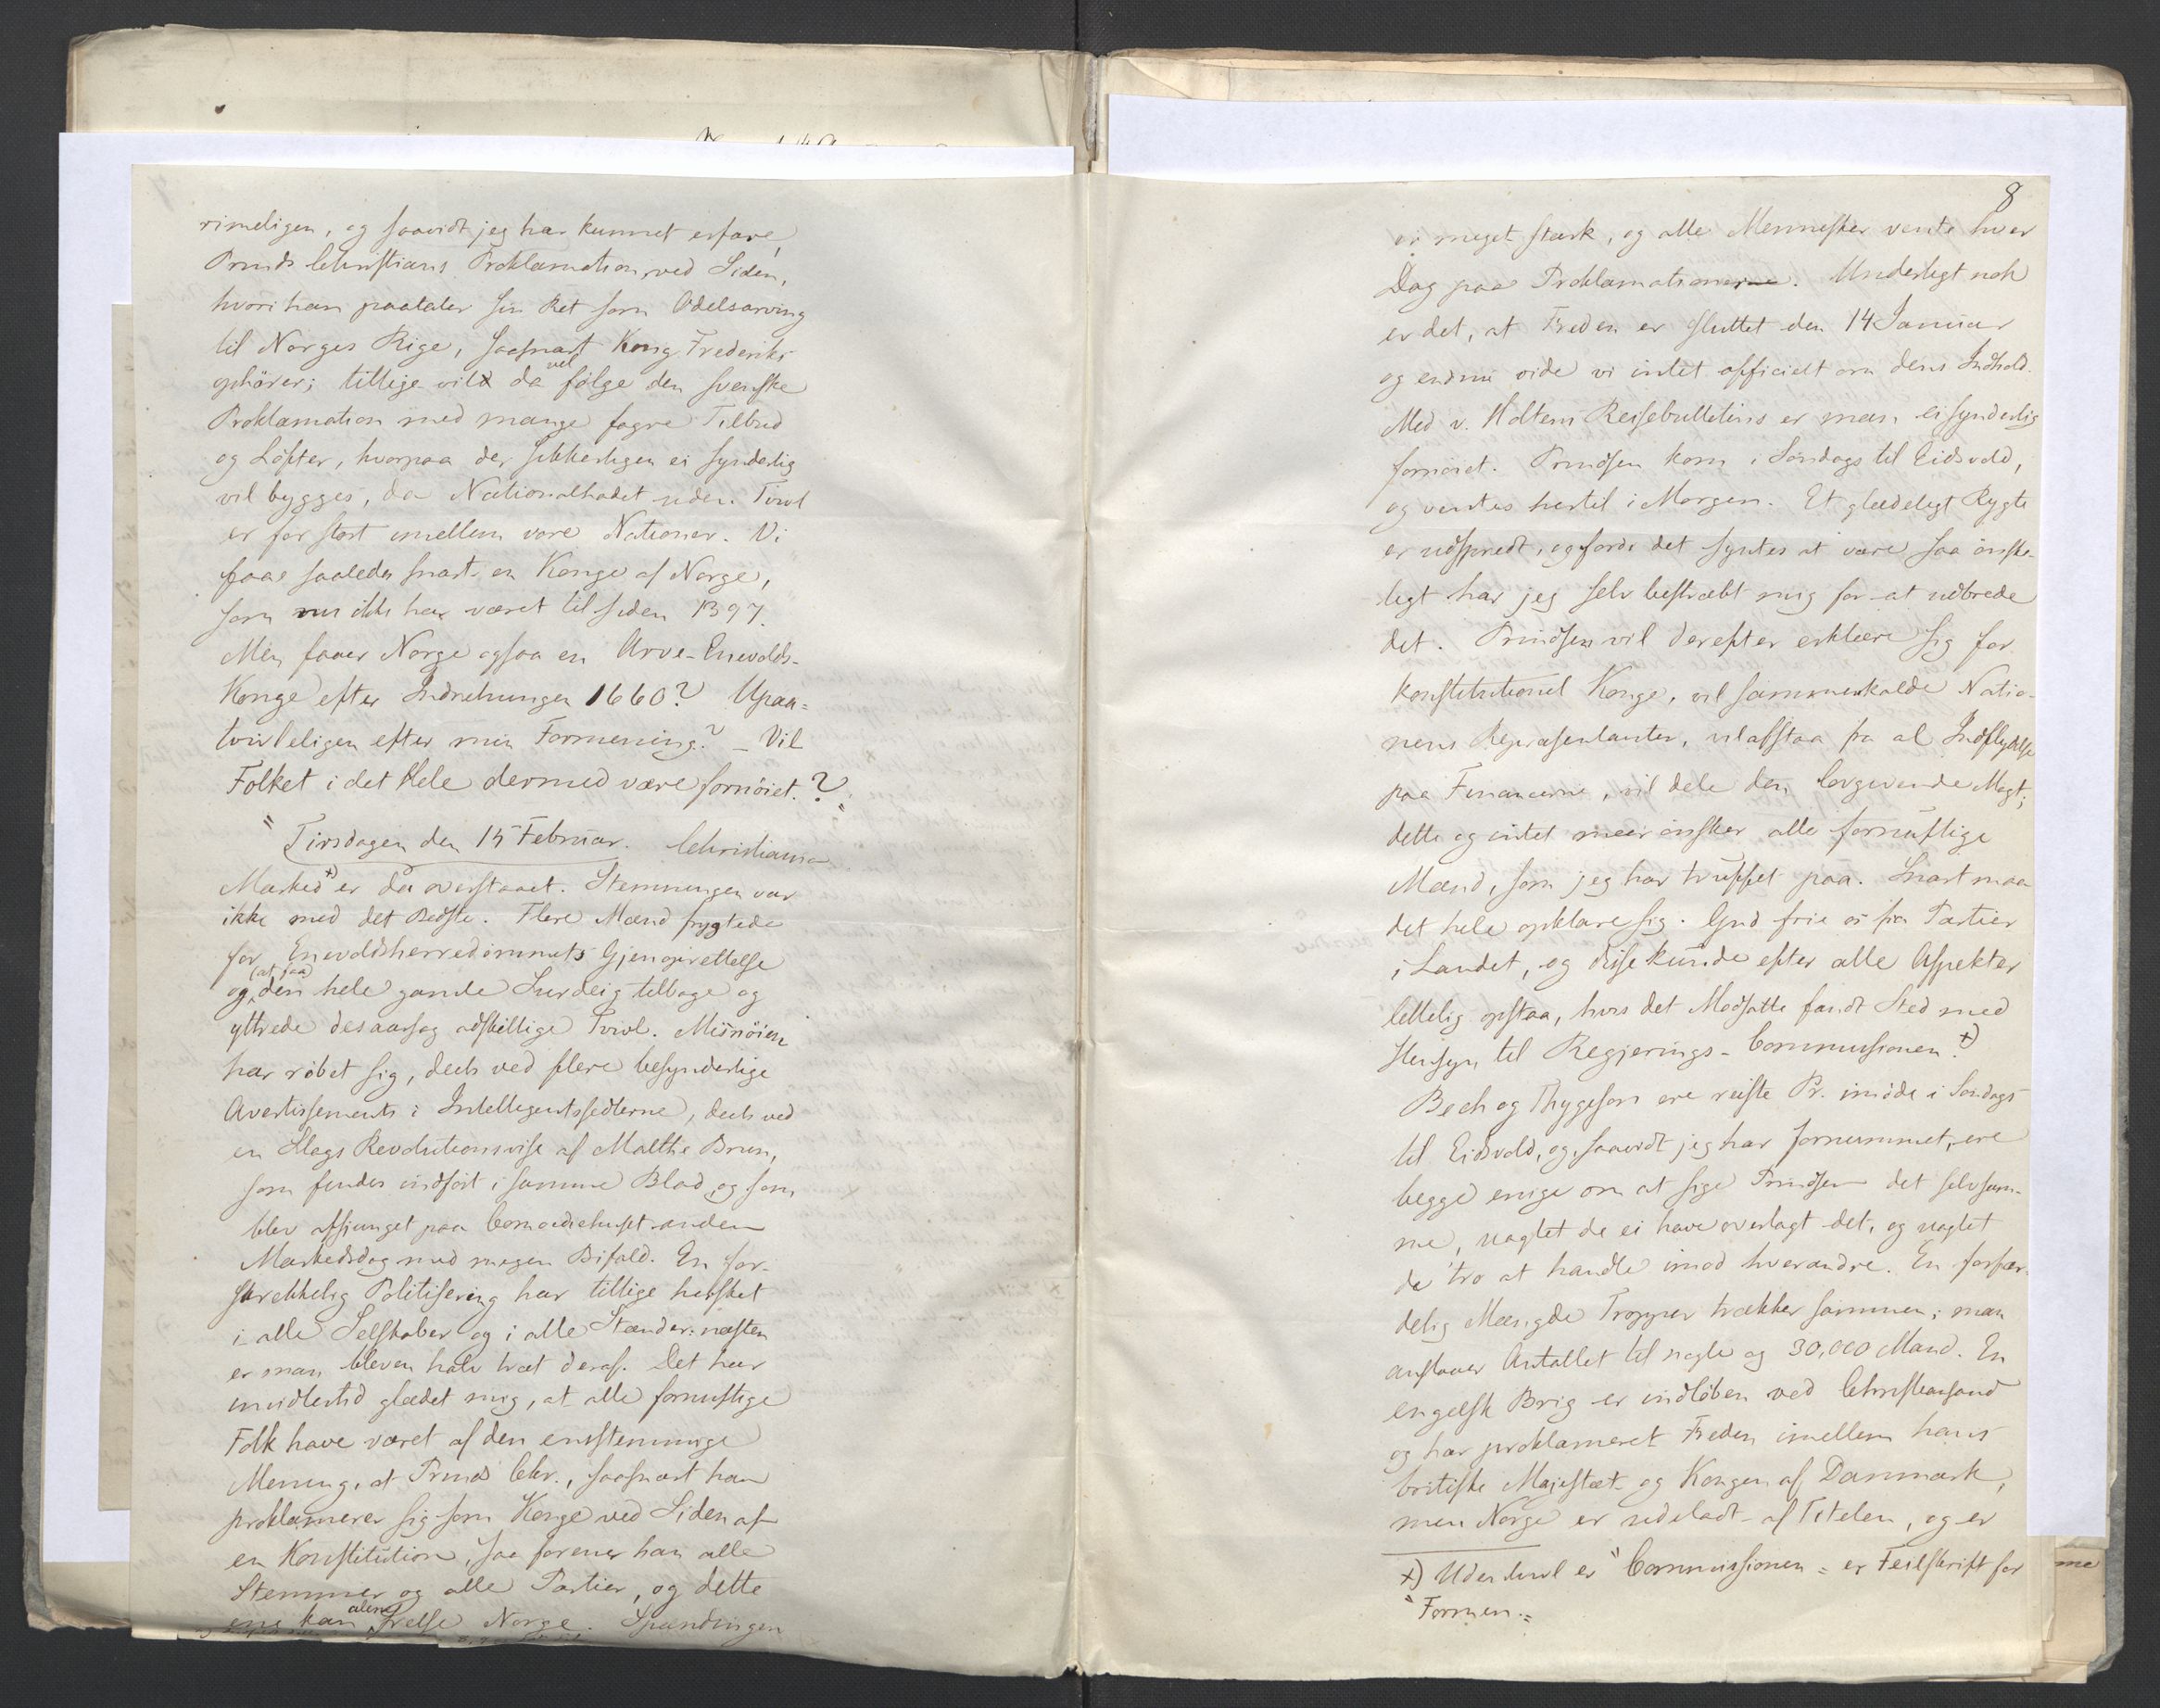 rimeligen, og saavidt jeg har kunnet erfare,
Prinds Christians Proklamation, ved Siden,
hvori han paataler sin Ret som Odelsarving
til Norges Rige, saasnart Kong Frederiks
ophører; tillige vil da vel følge den svenske
Proklamation med mange fagre Tilbud
og Løfter, hvorpaa der sikkerligen ei synderlig
vil bygges, da Nationalhadet uden Tvivl
er for stort imellem vore Nationer. Vi
faae saaledes snart en Konge af Norge,
som nu ikke har været til siden 1397.
Men faaer Norge ogsaa en Arve-Enevolds-
Konge efter Indretningen 1660? Upaa=
tvivleligen efter min Formening? - Vil
Folket i det Hele dermed være fornøiet.?
" Tirsdagen den 15 Februar. Christiania
Marked +) er da overstaaet. Stemningen var
ikke med det Bedste. Flere Mænd frygtede
for Enevoldsherredømmets Gjenoprettelse
og (at faa) den hele gamle Surdeig tilbage og
yttrede desaarsag adskillige Tvivl. Misnøien
har røbet sig, deels ved flere besynderlige
Avertissements i Intelligentssedlerne, deels ved
en Slags Revolutionsvise af Malthe Brun,
som findes indført i samme Blad, og som
blev afsjunget paa Comoediehuset anden
Markedsdag med megen Bifald. En for-
skrekkelig Politisering har tillige hersket
i alle Selskaber og i alle Stænder: næsten
er man bleven halv træt deraf. Det har
imidlertid glædet mig, at alle fornuftige
Folk have været af den enstemmige
Mening, at Prinds Chr., saasnart han
proklamerer sig som Konge ved Siden af
en Konstitution, saa forener han alle
Stemmer og alle Partier, og dette
ene kan alene frelse Norge. Spændingen
8
er meget stærk, og alle Mennesker vente hver
Dag paa Proklamationerne. Underligt nok
er det, at Freden er sluttet den 14 Januar
og endnu vide vi intet officielt om dens Indhold.
Med v. Holtens Reisebulletins er man ei synderlig
fornøiet. Prindsen kom i Søndags til Eidsvold,
og ventes hertil i Morgen. Et glædeligt Rygte
er udspredt, og fordi det syntes at være saa ønske-
ligt har jeg selv bestræbt mig for at udbrede
det. Prindsen vil derefter erklære sig for
konstitutionel Konge, vil sammenkalde Natio-
nens Repræsentanter, vil afstaa fra al Indflydelse
paa Financerne, vil dele den lovgivende Magt;
dette og intet meer ønsker alle fornuftige
Mænd, som jeg har truffet paa. Snart maa
det hele opklare sig. Gud frie os fra Partier
i Landet, og disse kunde efter alle Aspekter
lettelig opstaa, hvis det Modsatte fandt Sted med
Hensyn til Regjerings-Commissionen. +)
Bech og Thygeson ere reiste Pr. imøde i Søndags
til Eidsvold, og, saavidt jeg har fornummet, ere
begge enige om at sige Prindsen det selvsam-
me, uagtet de ei have overlagt det, og uagtet
de tro at handle imod hverandre. En forfær-
delig Mængde Tropper trækker sammen; man
anslaaer Antallet til nogle og 30,000 Mand. En
engelsk Brig er indløben ved Christiansand
og har proklameret Freden imellem hans
britiske Majestæt og Kongen af Danmark,
men Norge er udeladt af Titelen, og er
+) Uden Tvivl er "Commissionen = er Feilskrift for
"Formen.=